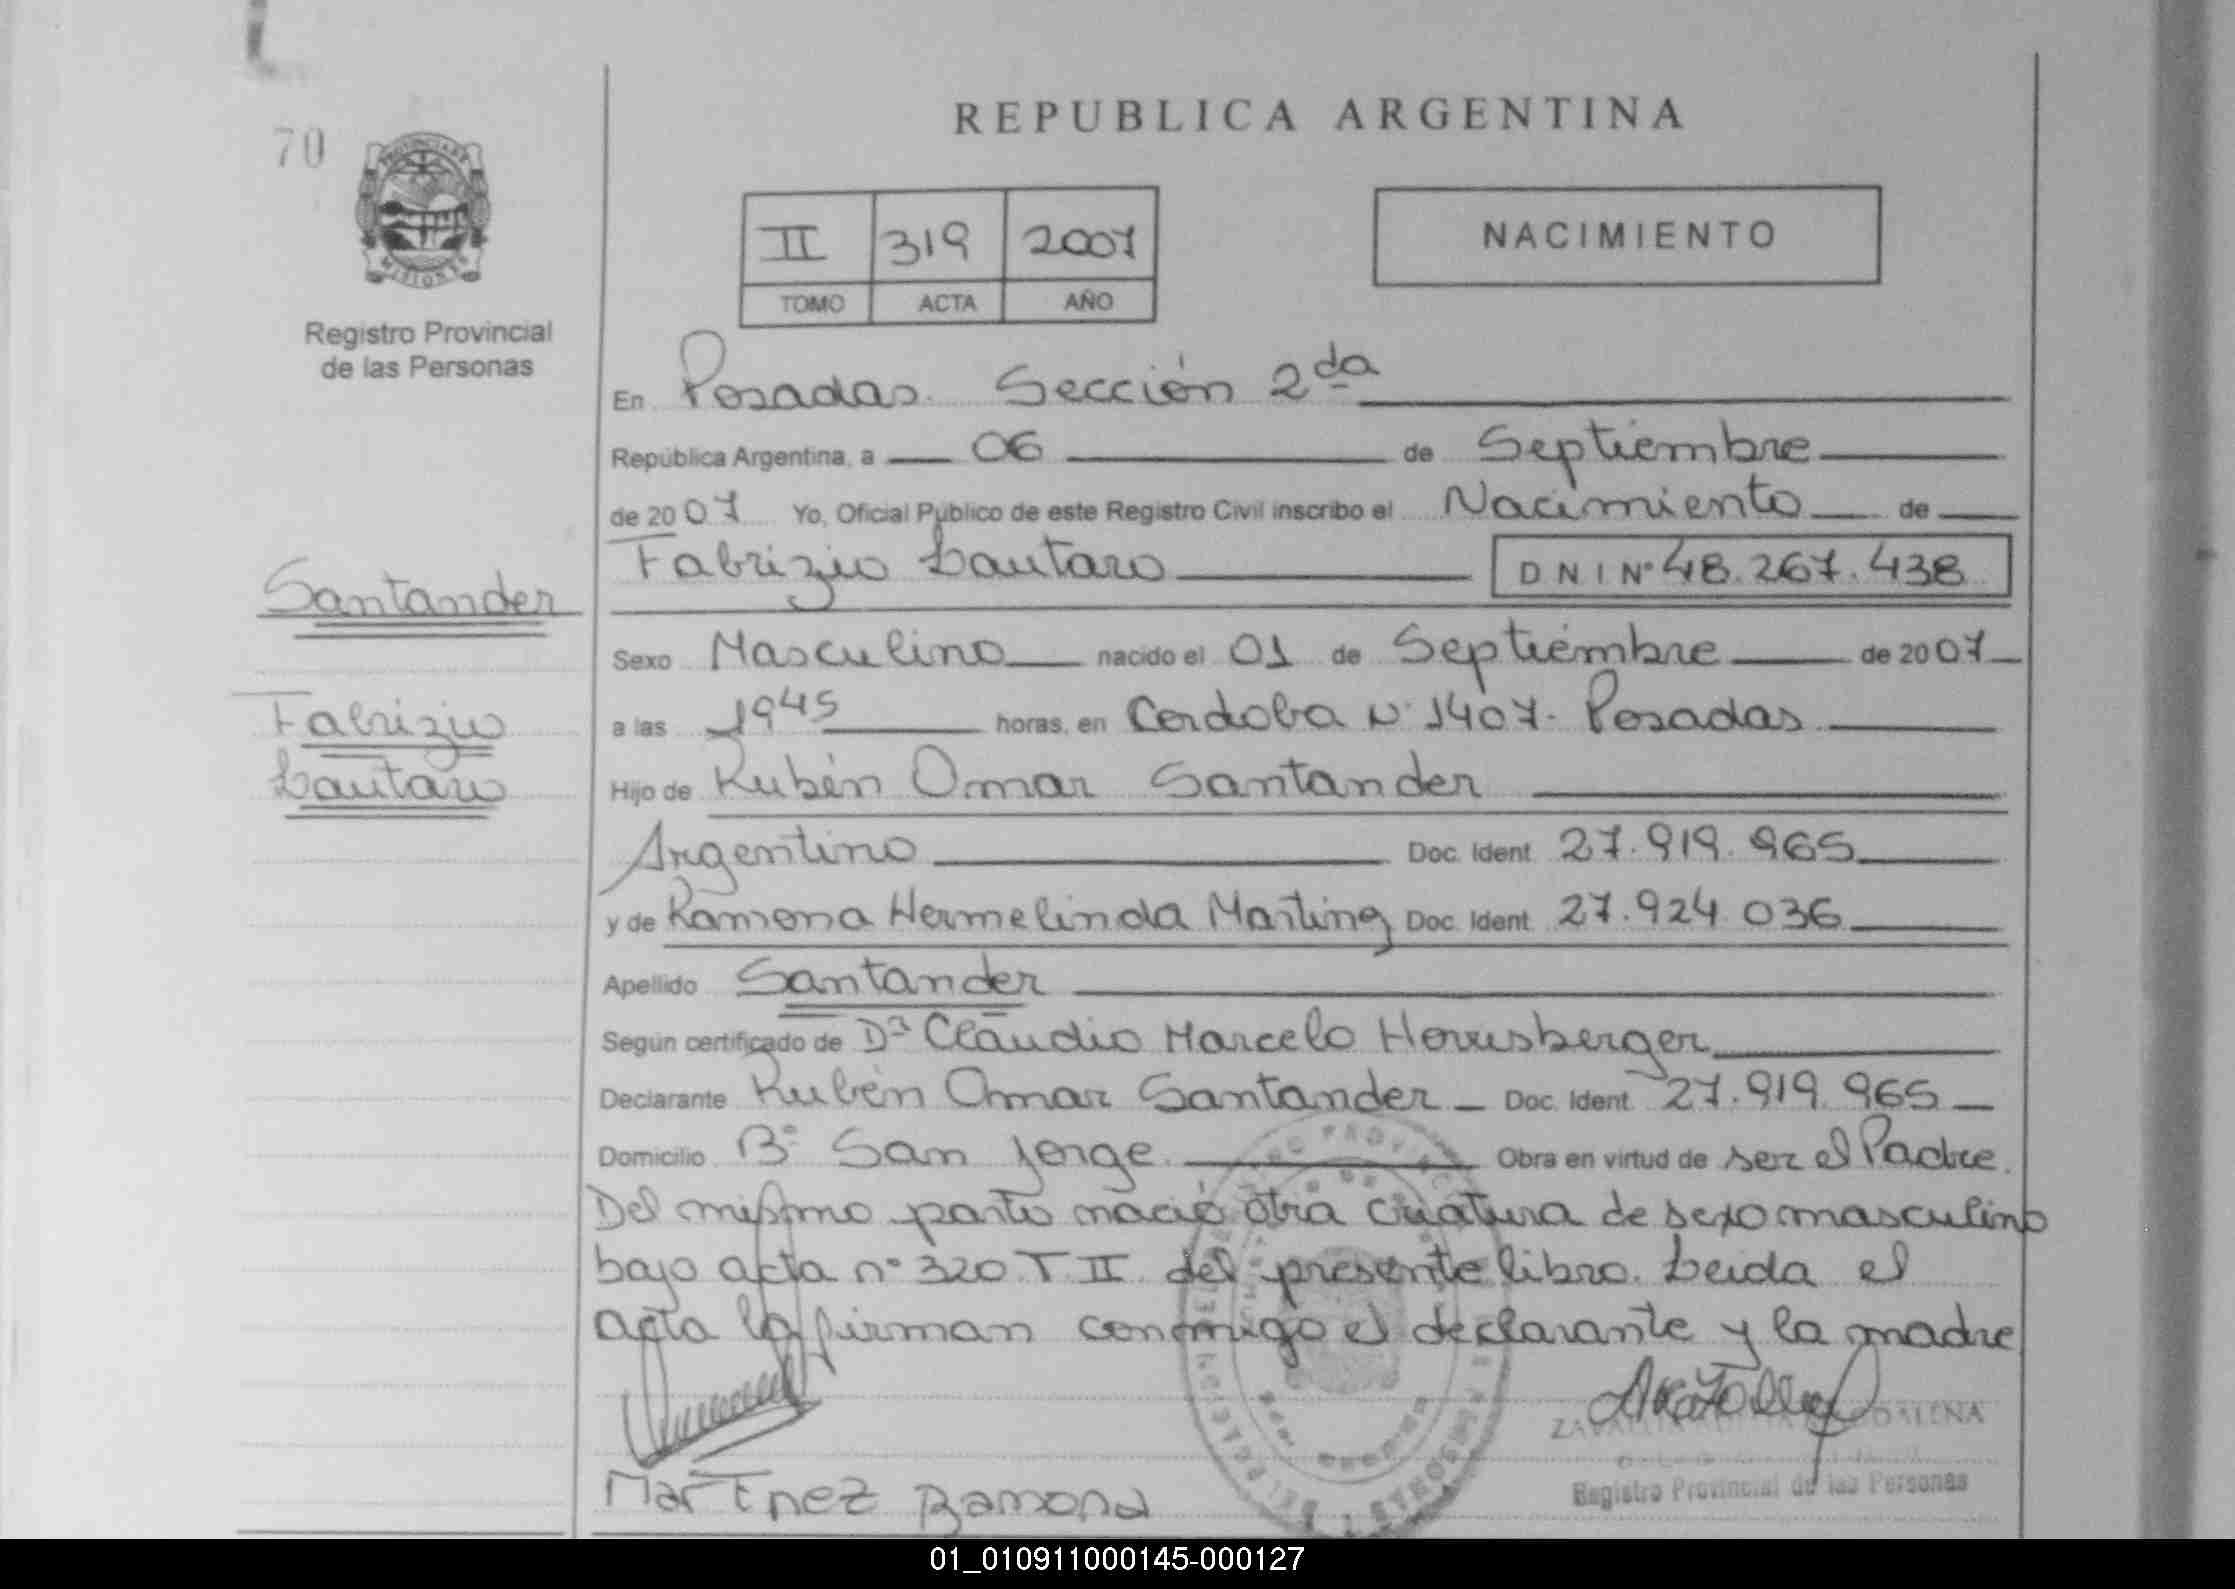 REPUBLICA ARGENTINA
70
PROVINCIA DE MISIONES
Registro Provincial
de las Personas
II 319 2007
TOMO ACTA AÑO
NACIMIENTO
En Posadas. Sección 2da
República Argentina, a 06 de Septiembre
de 2007 Yo, Oficial Público de este Registro Civil inscribo el Nacimiento de
Fabrizio Lautaro DNI Nº 48.267.438
Santander
Sexo Masculino nacido el 01 de Septiembre de 2007
Fabrizio
a las 1945 horas, en Cordoba Nº 1407. Posadas
Lautaro
Hijo de Rubén Omar Santander
Argentino Doc. Ident. 27.919.965
y de Ramona Hermelinda Doc. Ident. 27.924.036
Apellido Santander
Según certificado de Claudio Marcelo
Declarante Rubén Omar Santander Doc. Ident. 27.919.965
Domicilio Bº San Jorge Obra en virtud de ser el Padre.
Del mismo parto nació otra criatura de sexo masculino
bajo acta nº 320 T II del presente libro. Leida el
acta la firman conmigo el declarante y la madre
Registro Provincial de las Personas
Martinez Ramona
01_010911000145-000127